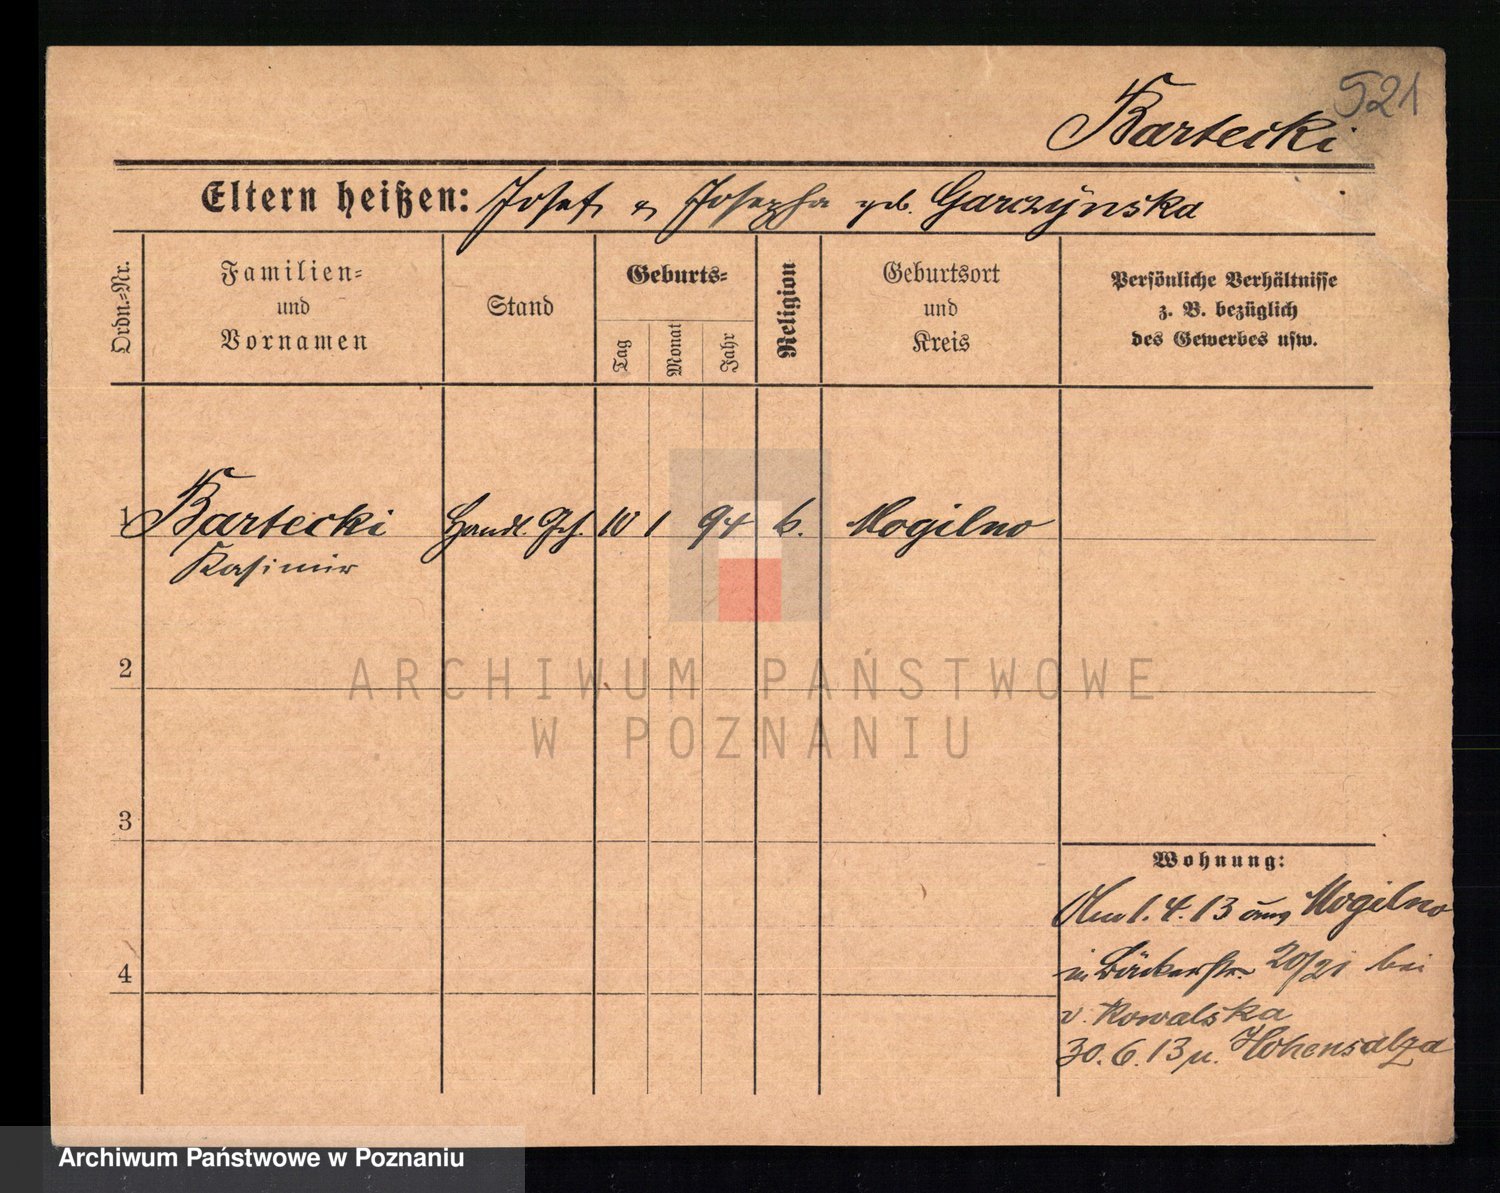 521
Bartecki
Eltern heißen: Josef u Josepha geb. Garczynska
Ordn.=Nr.
Familien=
und
Vornamen
Stand
Geburts=
Tag
Monat
Jahr
Religion
Geburtsort
und
Kreis
Persönliche Verhältnisse
z. B. bezüglich
des Gewerbes usw.
1 Bartecki Handl. Gh. 10 1 94 k. Mogilno
Kasimir
2
3
4
Wohnung:
Am 1.4.13 aus Mogilno
in Bäckerstr. 20/21 bei
v. Kowalska
30.6.13 n. Hohensalza
ARCHIWUM PAŃSTWOWE
W POZNANIU
Archiwum Państwowe w Poznaniu